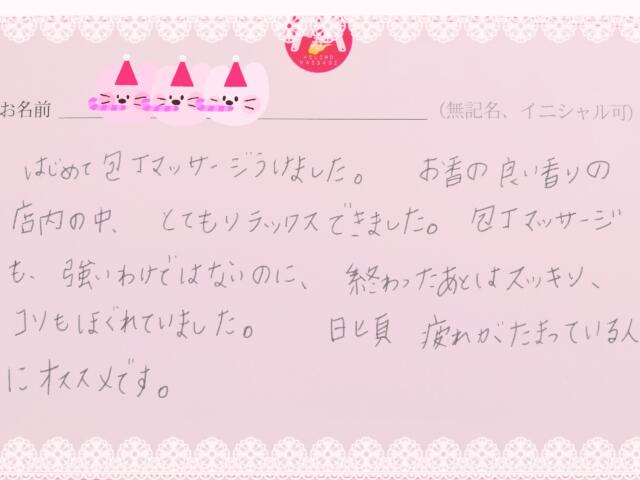 お名前
（無記名、イニシャル可）
はじめて包丁マッサージうけました。 お香の良い香りの
店内の中、とてもリラックスできました。包丁マッサージ
も、強いわけではないのに、終わったあとはスッキリ、
コリもほぐれていました。 日頃 疲れがたまっている人
にオススメです。